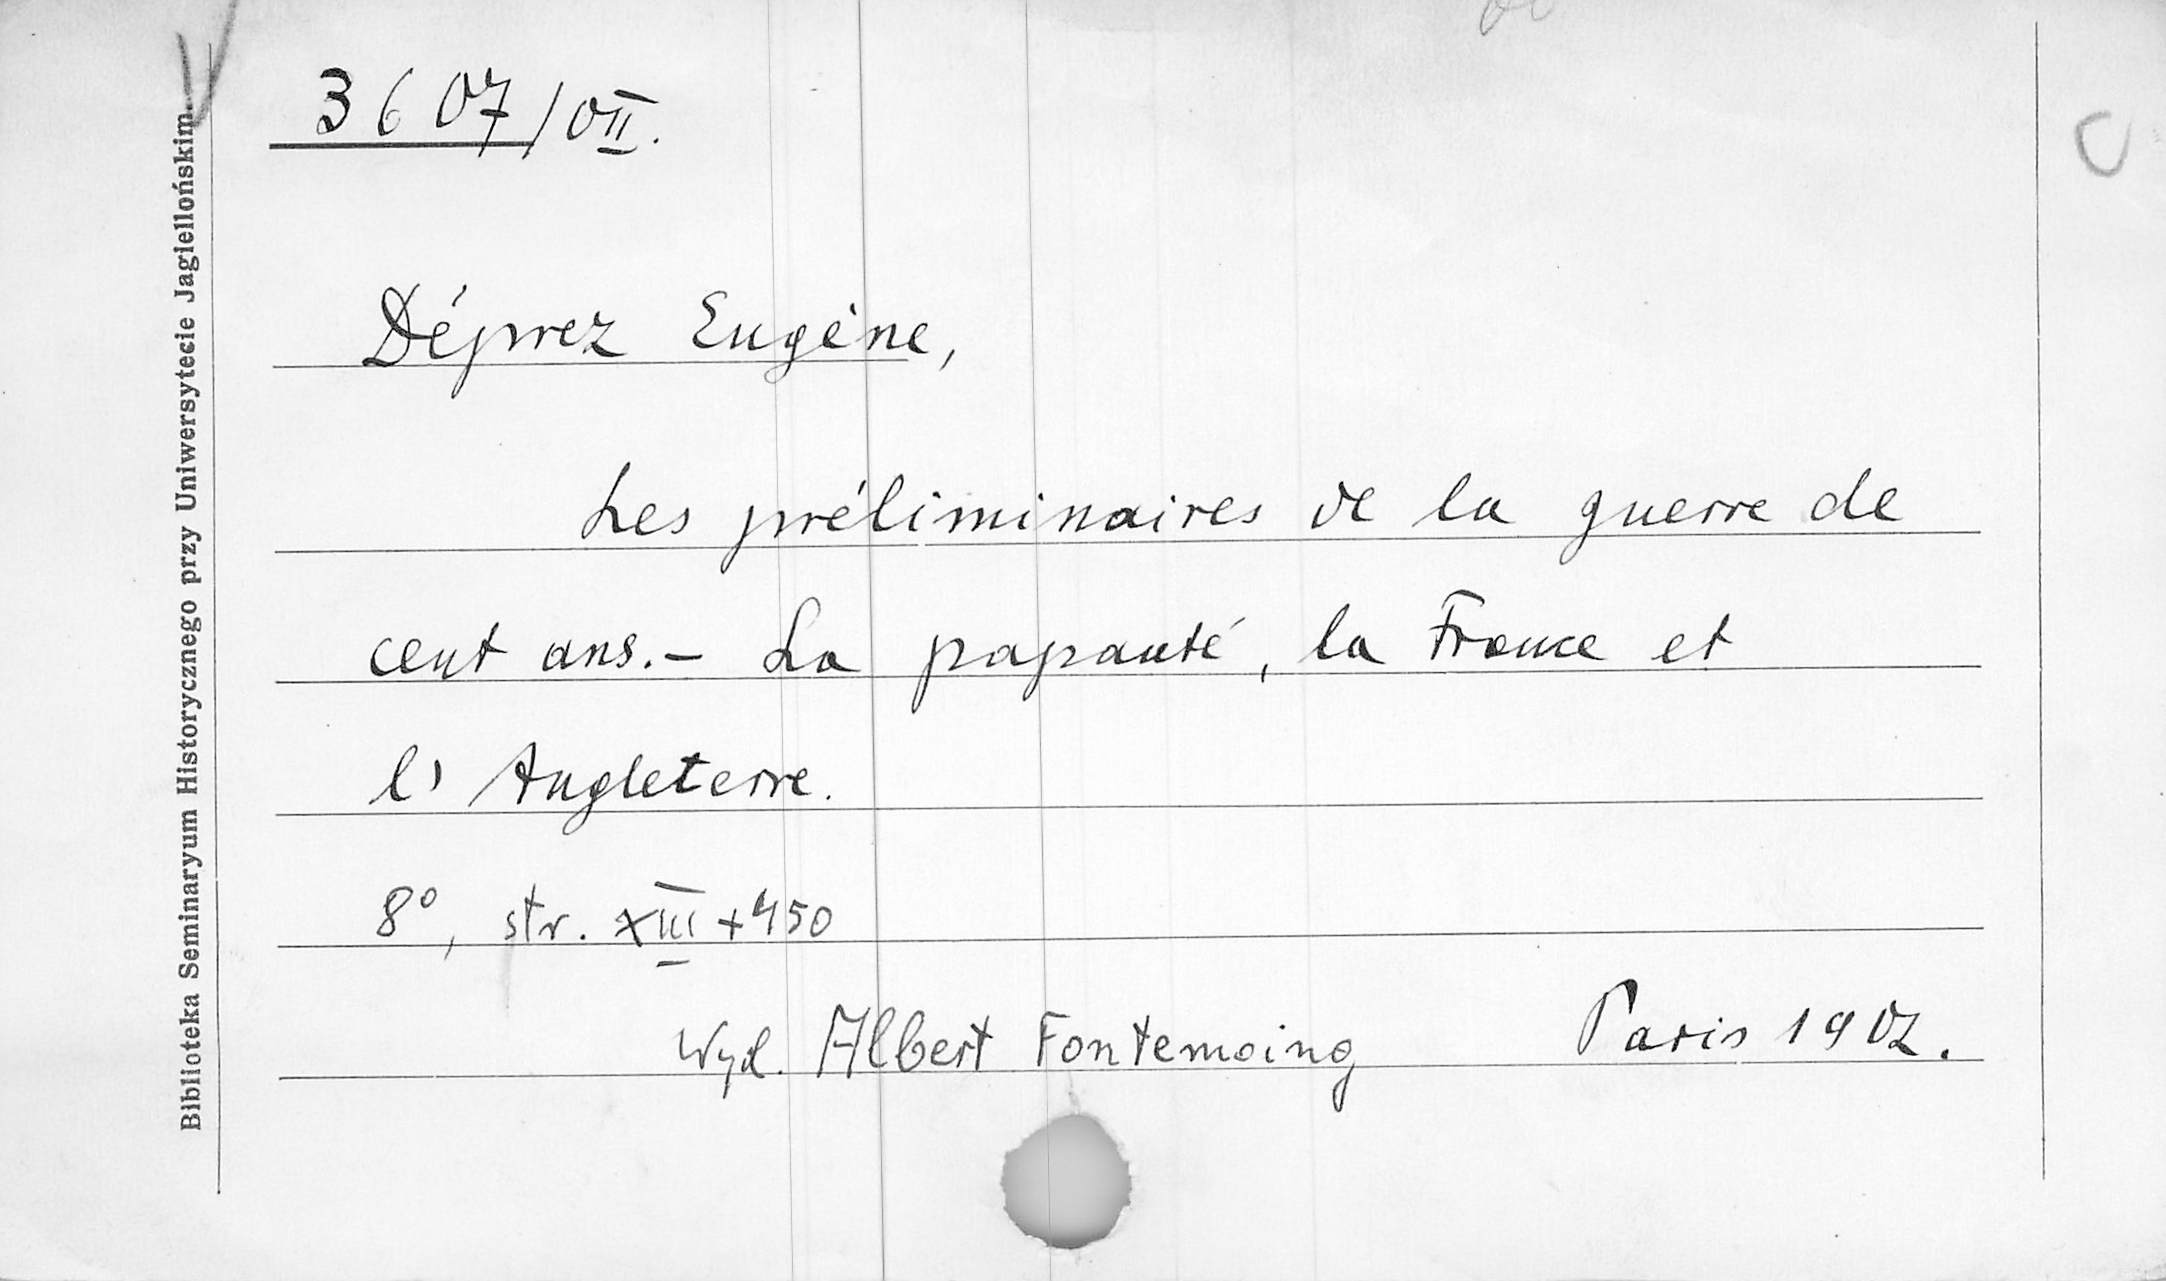 3607/OII.
Déprez Eugène,
Les préliminaires de la guerre de
cent ans.- La papauté, la France et
l'Angleterre.
8°, str. XIII + 450
Wyd. Albert Fontemoing Paris 1902.
Biblioteka Seminaryum Historycznego przy Uniwersytecie Jagiellońskim.
C